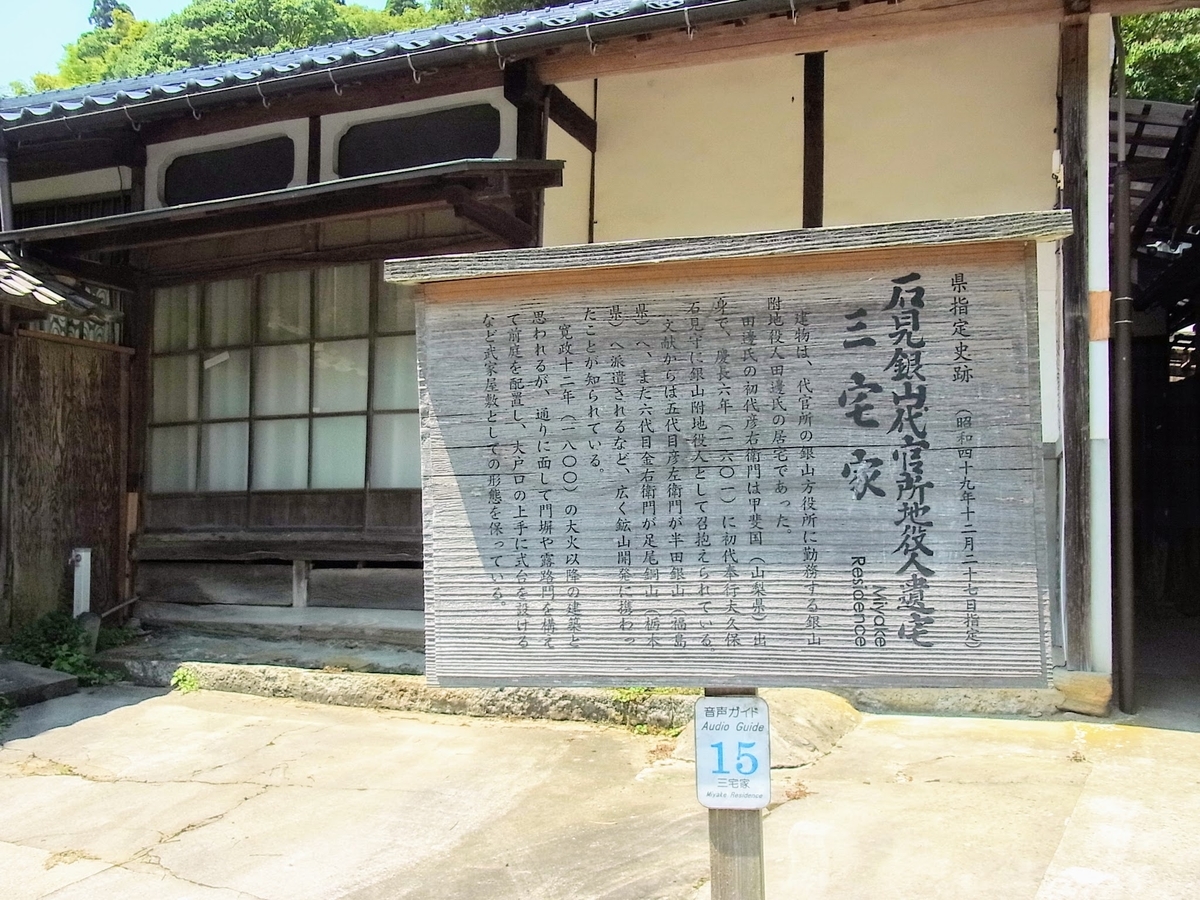 県指定史跡　(昭和四十九年十二月二十七日指定)
石見銀山代官所地役人遺宅
三宅家
Miyake
Residence
建物は、代官所の銀山方役所に勤務する銀山
附地役人田邊氏の居宅であった。
田邊氏の初代彦右衛門は甲斐国（山梨県）出
身で、慶長六年（一六〇一）に初代奉行大久保
石見守に銀山附地役人として召抱えられている。
文献からは五代目彦左衛門が半田銀山（福島
県）へ、また六代目金右衛門が足尾銅山（栃木
県）へ派遣されるなど、広く鉱山開発に携わっ
たことが知られている。
寛政十二年（一八〇〇）の大火以降の建築と
思われるが、通りに面して門塀や露路門を構え
て前庭を配置し、大戸口の上手に式台を設ける
など武家屋敷としての形態を保っている。
音声ガイド
Audio Guide
15
三宅家
Miyake Residence